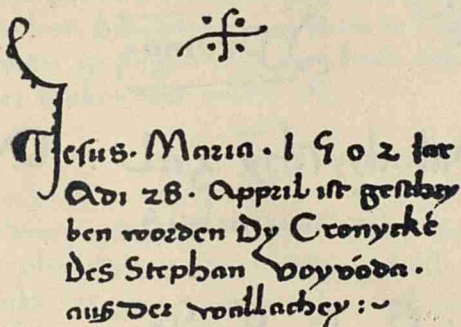 Jesus. Maria. 1502 Jar
Adi 28. Appril ist geschey
ben worden Dy Cronycké
Des Stephan Voyvóda.
auß der wallachey:~